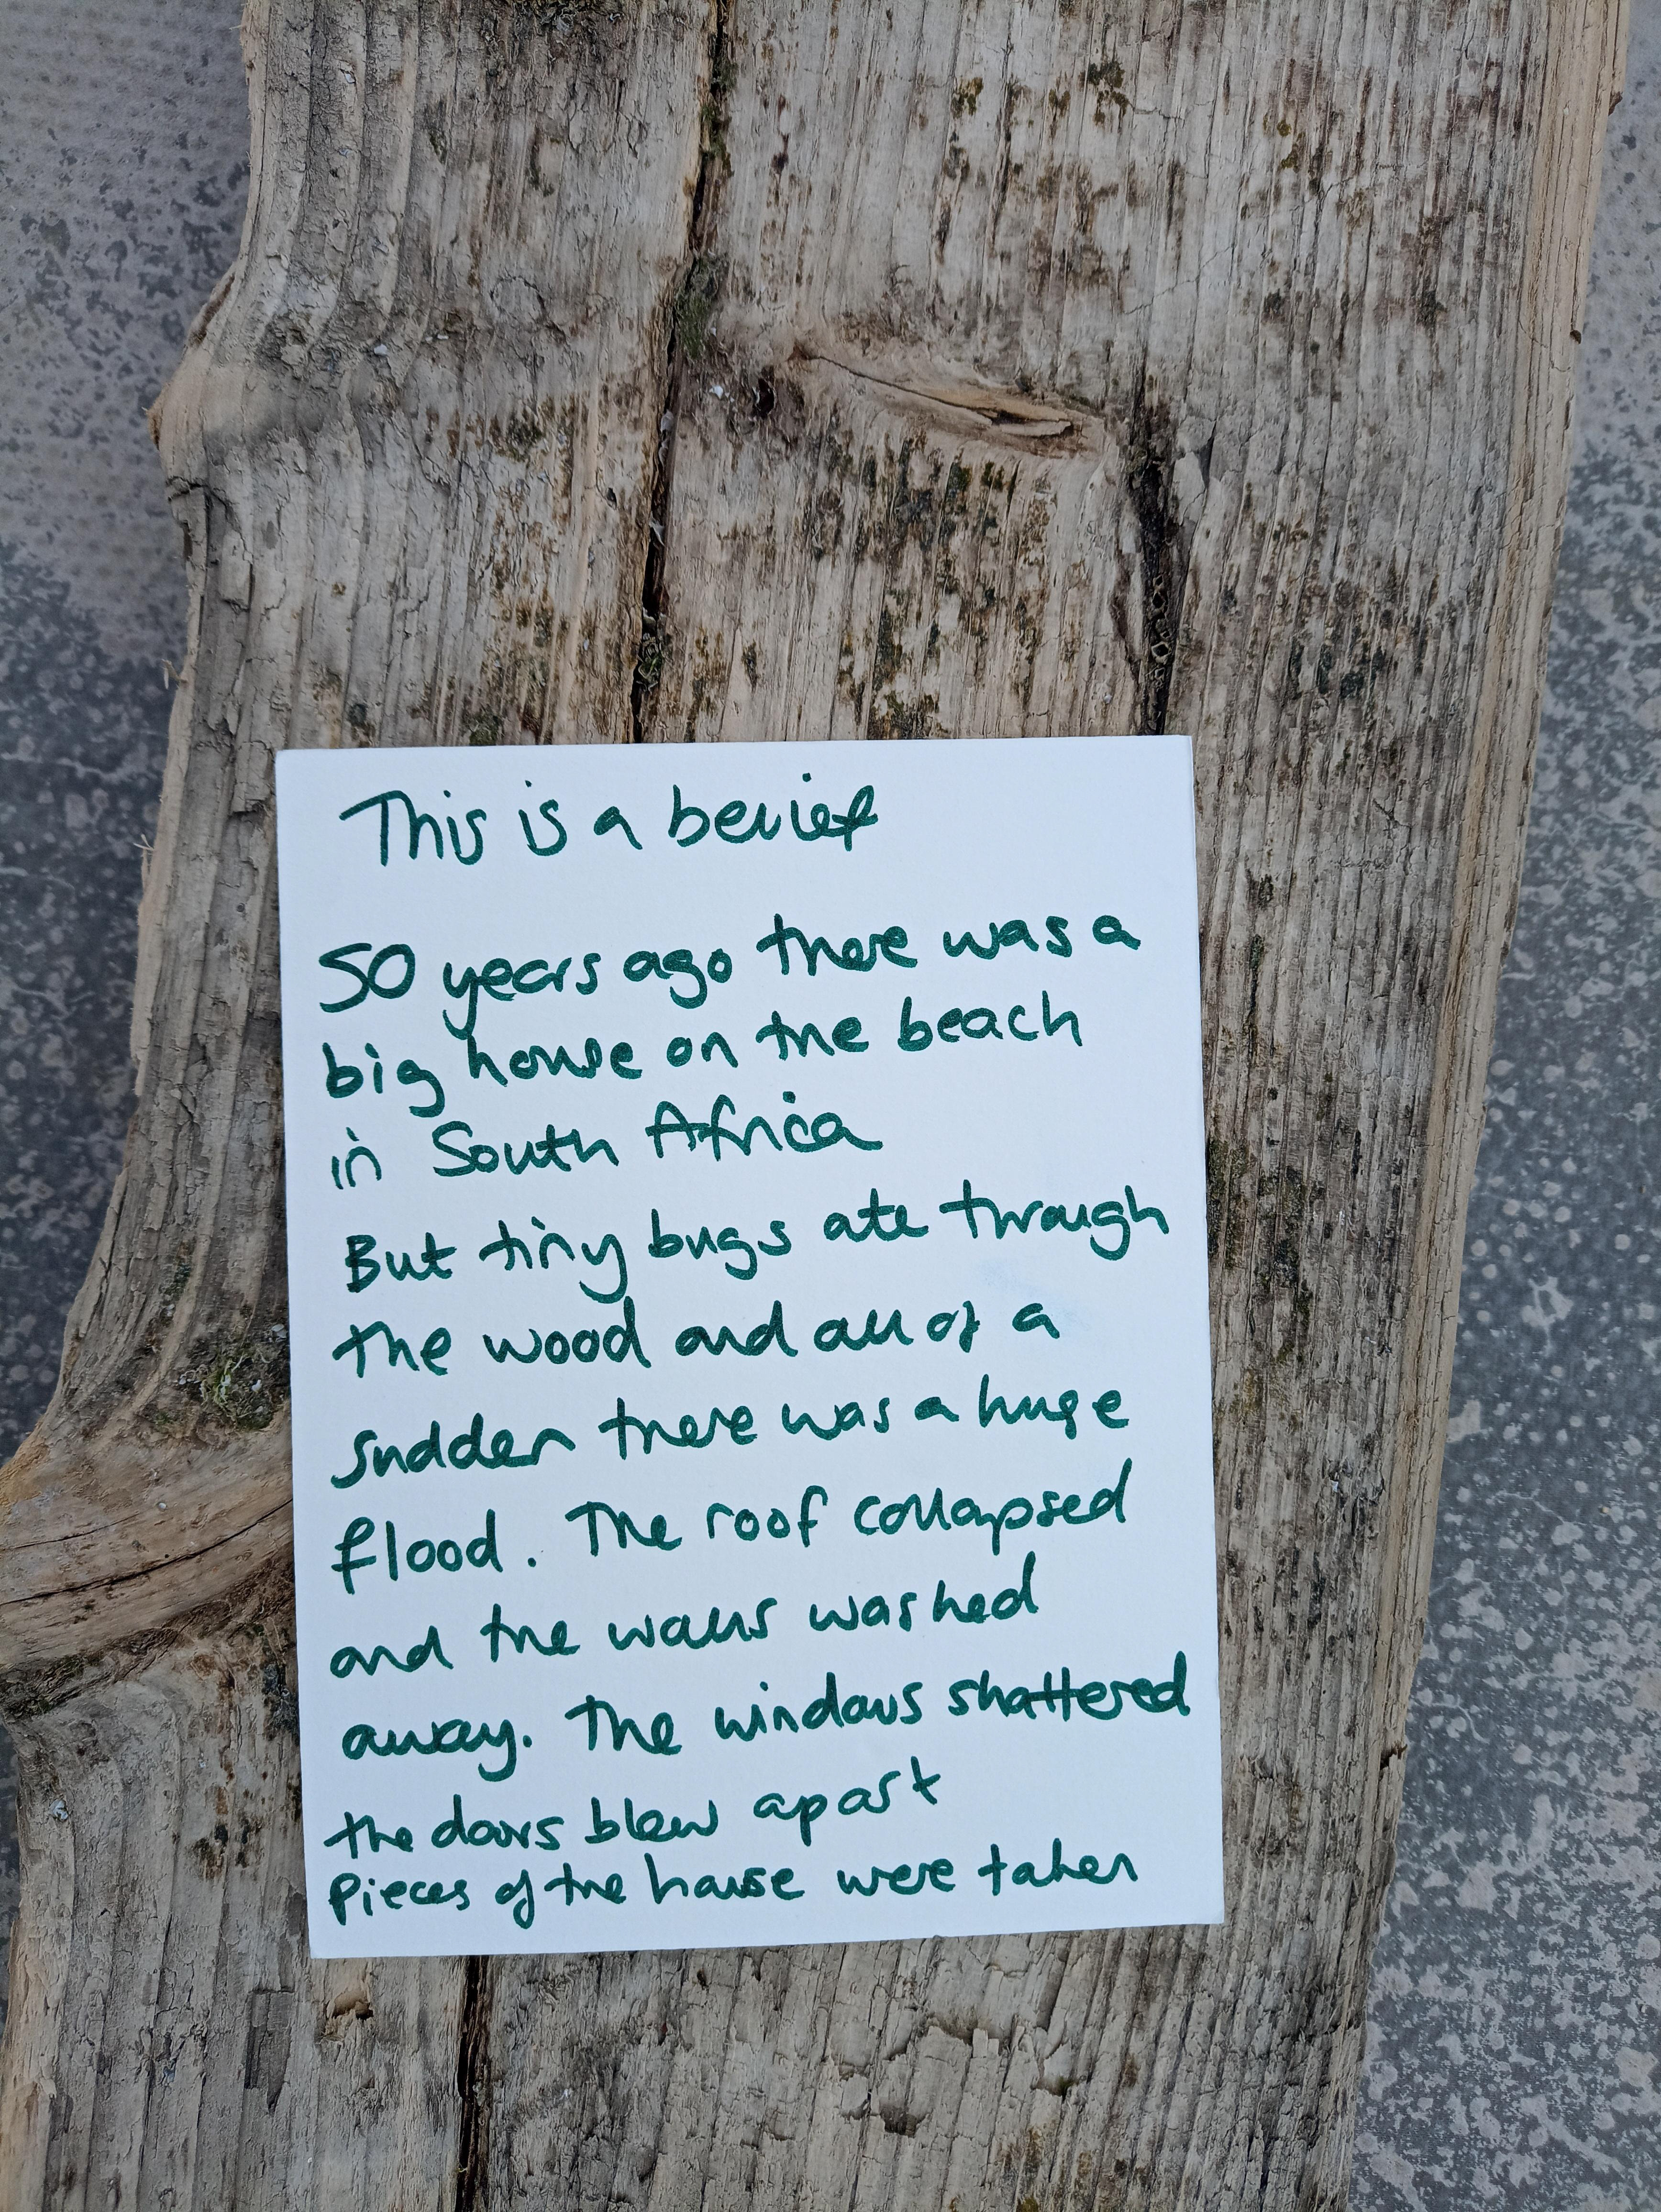 This is a belief
50 years ago there was a
big house on the beach
in South Africa
But tiny bugs ate through
the wood and all of a
sudden there was a huge
flood. The roof collapsed
and the walls washed
away. The windows shattered
the doors blew apart
Pieces of the house were taken